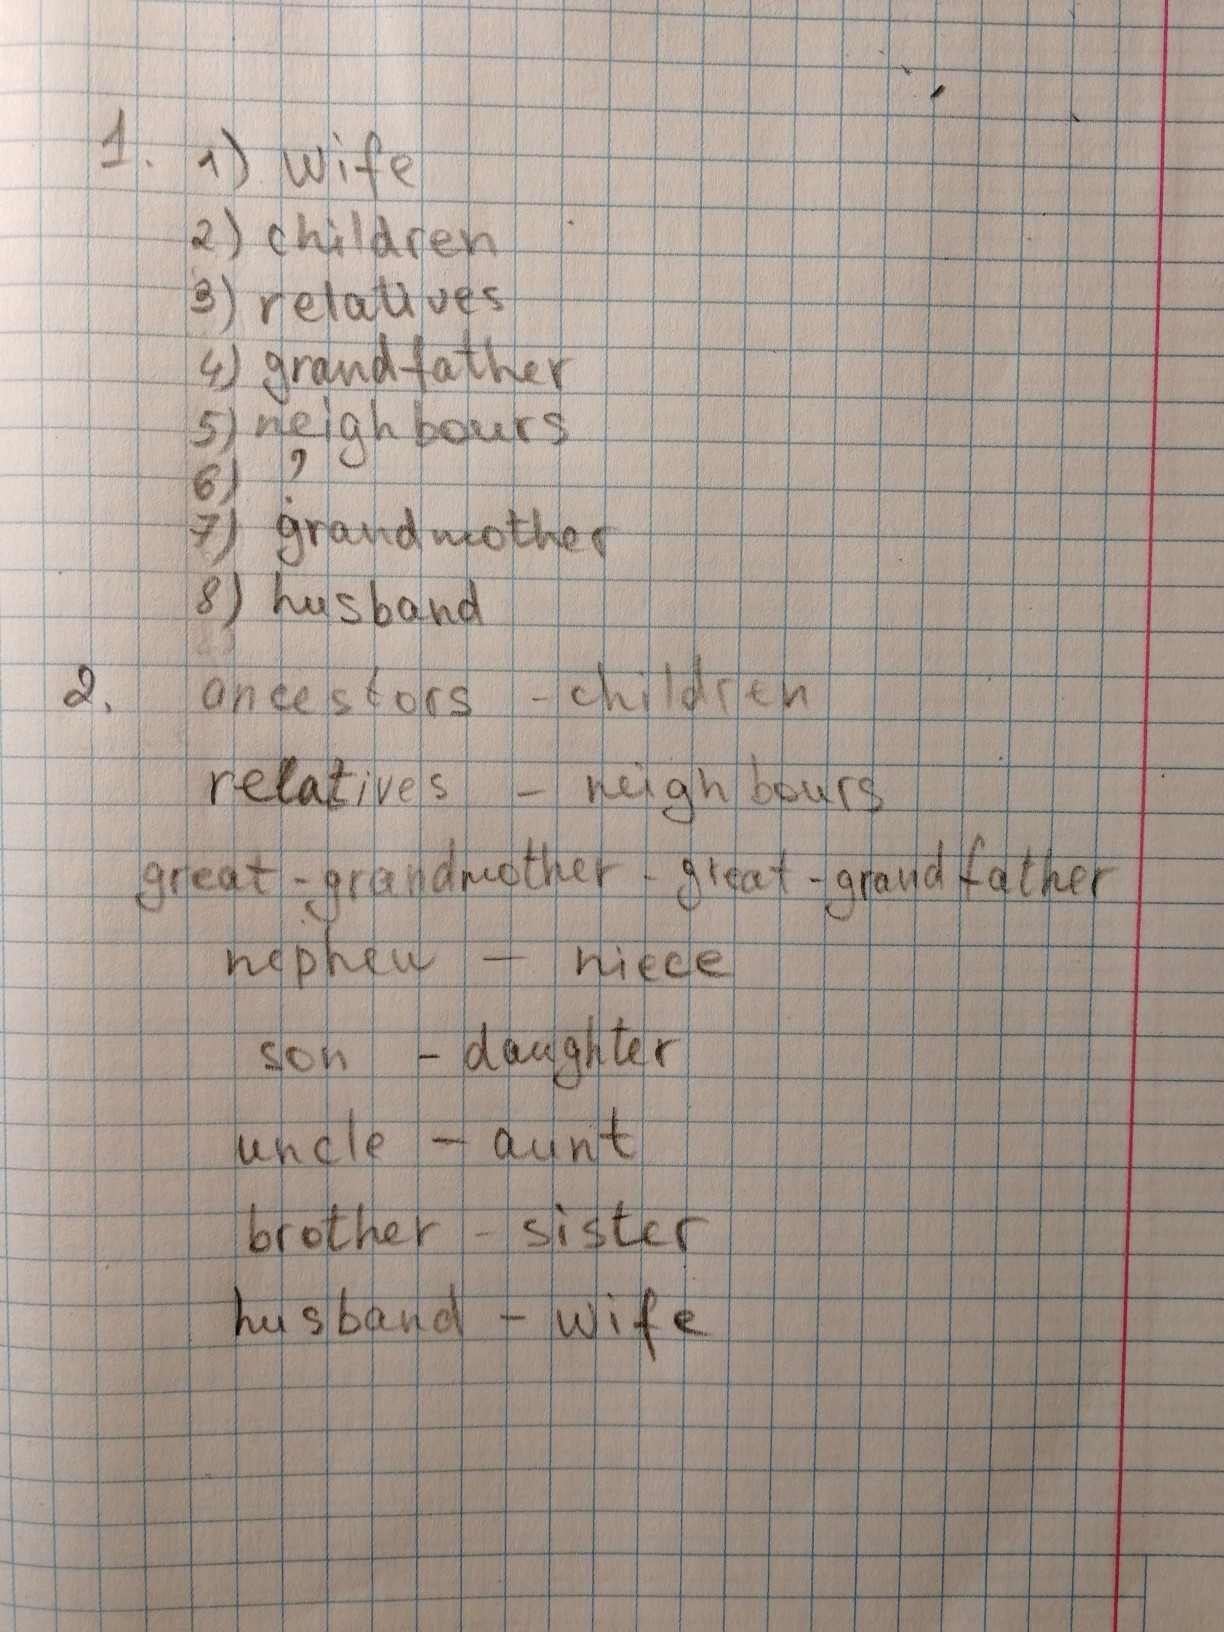 1. 1) wife
2) children
3) relatives
4) grandfather
5) neighbours
6) ?
7) grandmother
8) husband
2. ancestors - children
relatives - neighbours
great-grandmother - great-grandfather
nephew - niece
son - daughter
uncle - aunt
brother - sister
husband - wife